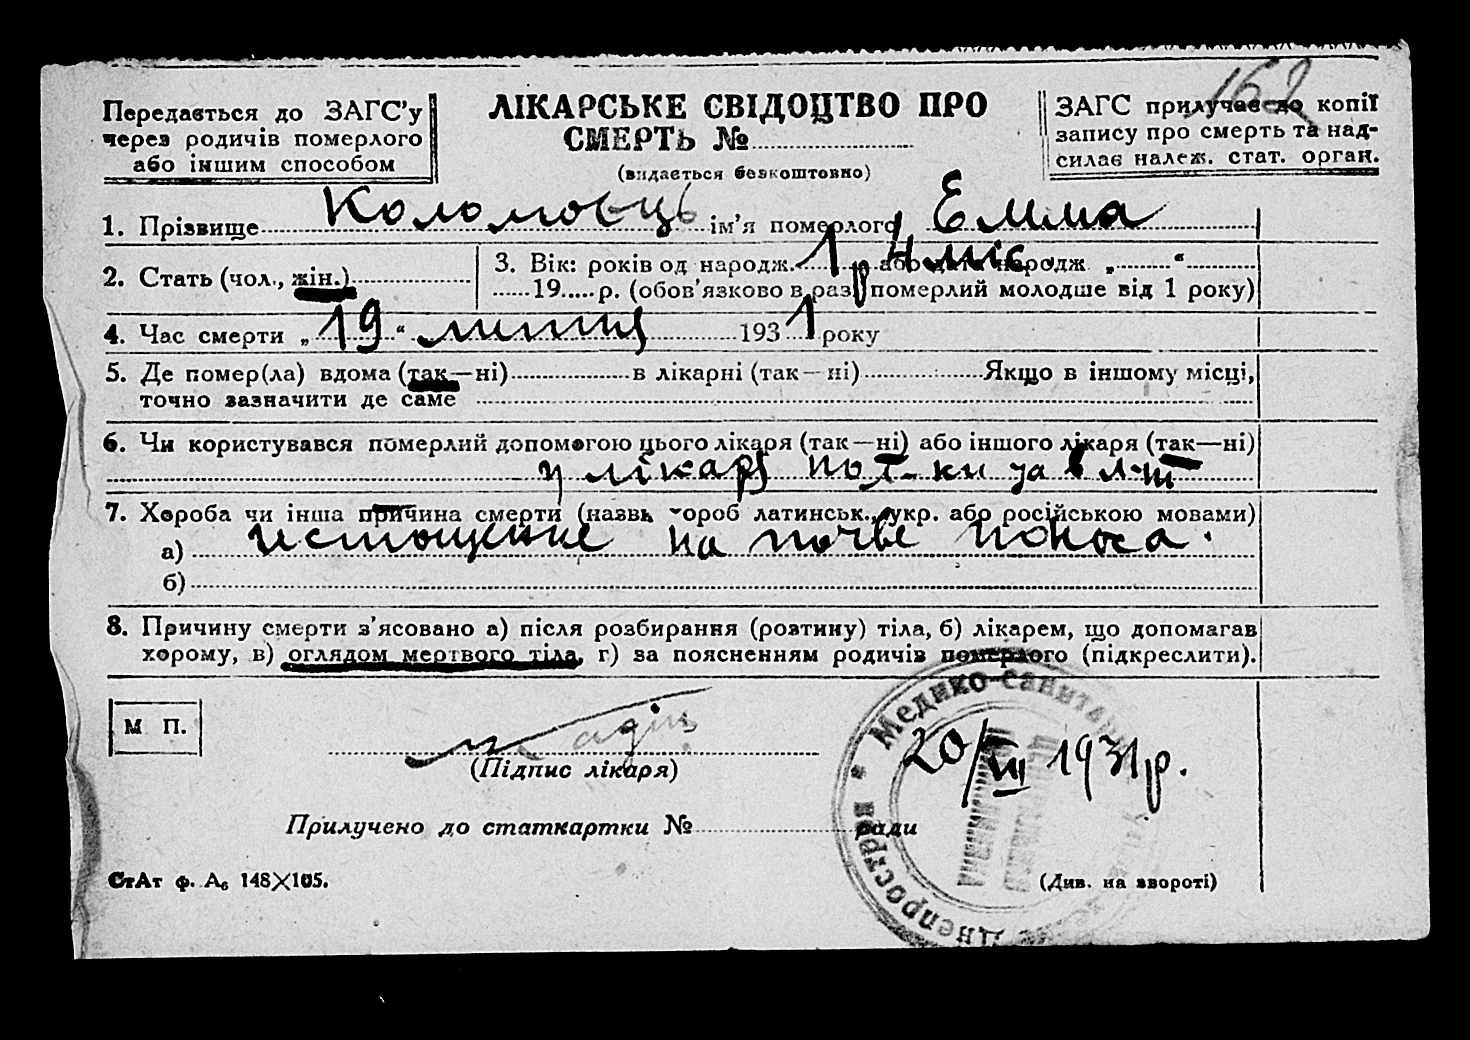 162
Передається до ЗАГС'у
через родичів померлого
або іншим способом
ЛІКАРСЬКЕ СВІДОЦТВО ПРО
СМЕРТЬ №
(видається безкоштовно)
ЗАГС прилучає до копії
запису про смерть та над-
силає належ. стат. орган.
1. Прізвище Коломоєць ім'я померлого Емма
2. Стать (чол., жін.)
3. Вік: років од народж. 1 р 4 міс. або дата народж „ “
19 р. (обов'язково в разі померлий молодше від 1 року)
4. Час смерти „19“ липня 1931 року
5. Де помер(ла) вдома (так—ні) в лікарні (так—ні) Якщо в іншому місці,
точно зазначити де саме
6. Чи користувався померлий допомогою цього лікаря (так—ні) або іншого лікаря (так—ні)
у лікаря
7. Хороба чи інша причина смерти (назви хороб латинськ., укр. або російською мовами)
а) истощение на почве поноса.
б)
8. Причину смерти з'ясовано а) після розбирання (розтину) тіла, б) лікарем, що допомагав
хорому, в) оглядом мертвого тіла, г) за поясненням родичів померлого (підкреслити).
М П.
(Підпис лікаря)
20/VII 1931 р.
Медико-санитар
Днепрострой
Прилучено до статкартки № ради
СтАт ф. А₆ 148×105.
(Див. на звороті)